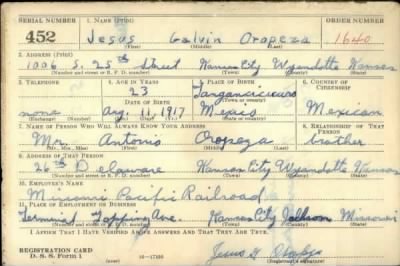 SERIAL NUMBER 1. NAME (Print) ORDER NUMBER
452 Jesus Galvin Oropeza 1640
(First) (Middle) (Last)
2. ADDRESS (Print)
1006 S. 25th Street Kansas City Wyandotte Kansas
(Number and street or R. F. D. number) (Town) (County) (State)
3. TELEPHONE 4. AGE IN YEARS 5. PLACE OF BIRTH 6. COUNTRY OF CITIZENSHIP
23
(Town or county)
DATE OF BIRTH
none Aug. 11, 1917 Mexico Mexican
(Exchange) (Number) (Mo.) (Day) (Yr.) (State or country)
7. NAME OF PERSON WHO WILL ALWAYS KNOW YOUR ADDRESS 8. RELATIONSHIP OF THAT PERSON
Mr. Antonio Oropeza brother
(Mr., Mrs., Miss) (First) (Middle) (Last)
9. ADDRESS OF THAT PERSON
26th Delaware Kansas City Wyandotte Kansas
(Number and street or R. F. D. number) (Town) (County) (State)
10. EMPLOYER'S NAME
Missouri Pacific Railroad
11. PLACE OF EMPLOYMENT OR BUSINESS
Terminal Topping Ave. Kansas City Jackson Missouri
(Number and street or R. F. D. number) (Town) (County) (State)
I AFFIRM THAT I HAVE VERIFIED ABOVE ANSWERS AND THAT THEY ARE TRUE.
REGISTRATION CARD
D. S. S. Form 1 16—17105 (Registrant's signature)